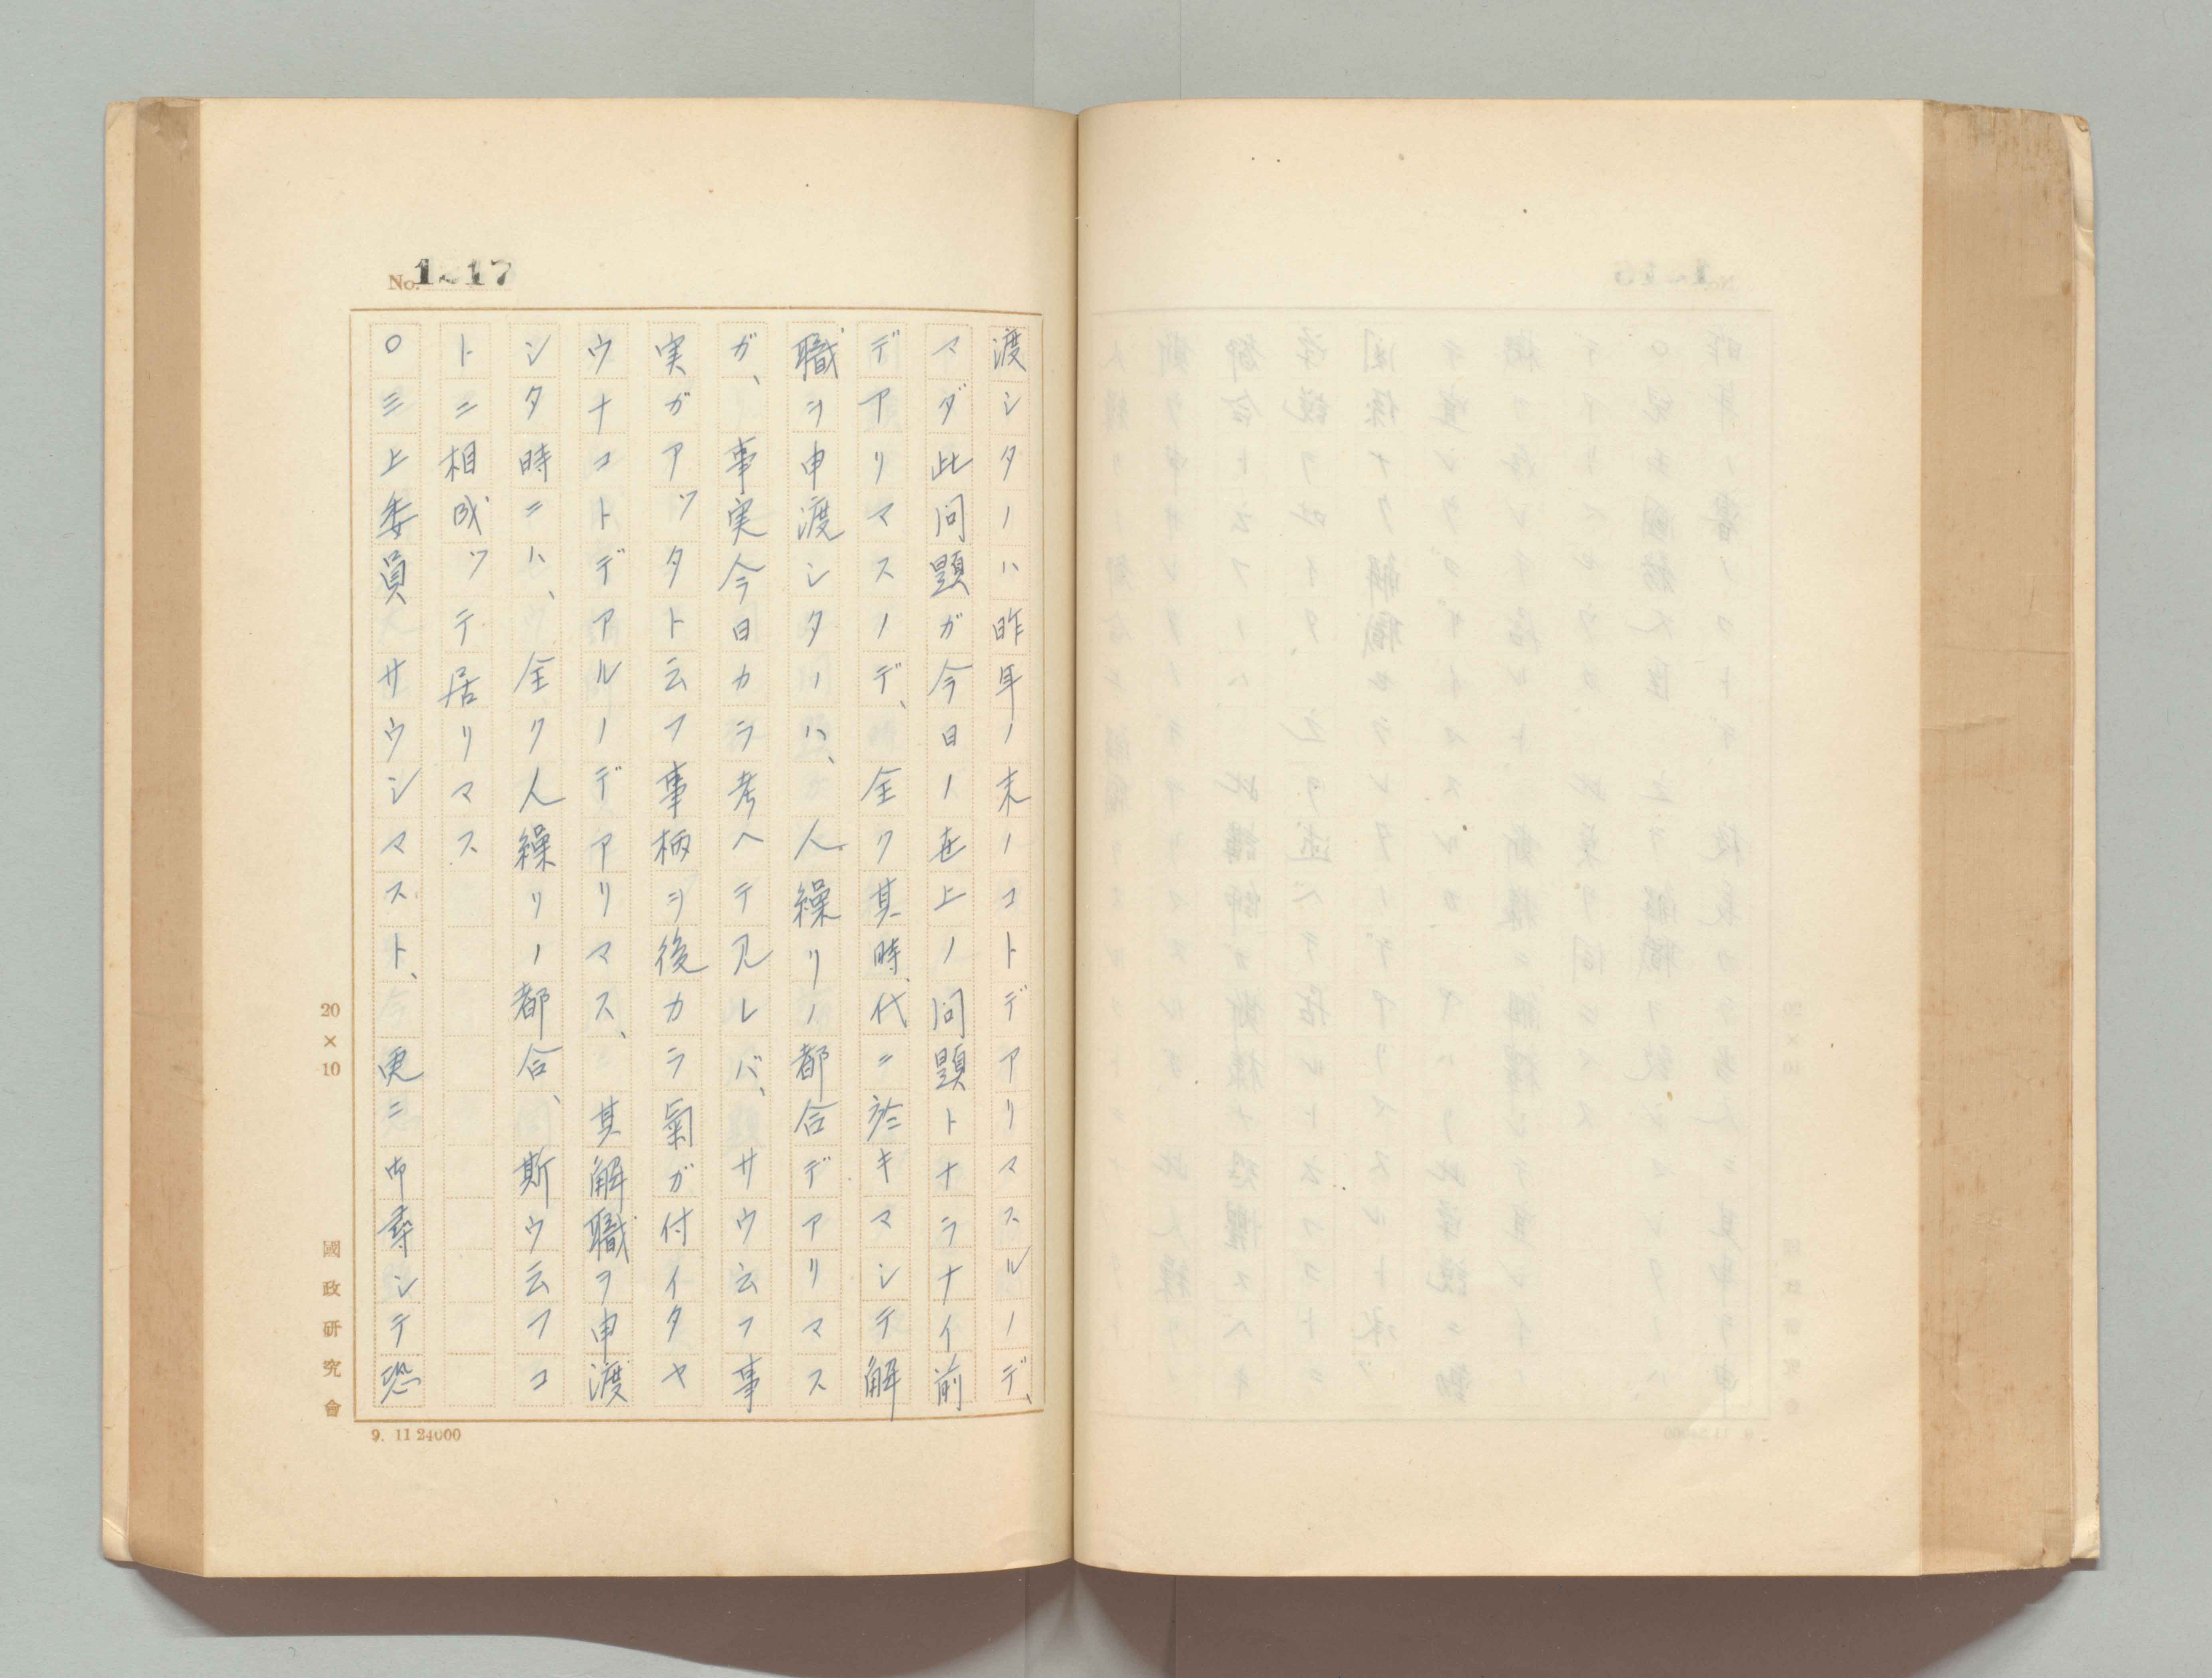 No.1217
渡シタノハ昨年ノ末ノコトデアリマスルノデ、
マダ此問題ガ今日ノ世上ノ問題トナラナイ前
デアリマスノデ、全ク其時代ニ於キマシテ解
職ヲ申渡シタノハ、人繰リノ都合デアリマス
ガ、事実今日カラ考ヘテ見レバ、サウ云フ事
実ガアツタト云フ事柄ヲ後カラ氣ガ付イタヤ
ウナコトデアルノデアリマス、其解職ヲ申渡
シタ時ニハ、全ク人繰リノ都合、斯ウ云フコ
トニ相成ツテ居リマス
〇三上委員 サウシマスト、更ニ御尋シテ恐
20×10
國政研究會
9. 11 24000